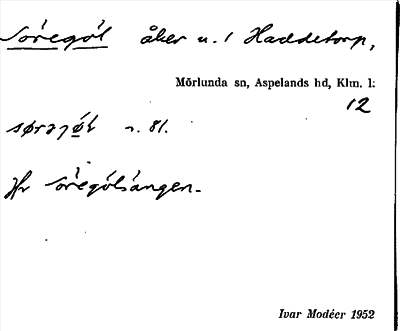 Söregöl åker u. 1 Haddetorp,
Mörlunda sn, Aspelands hd, Klm. l:
12
s. 81.
Jfr Söregölsängen.
Ivar Modéer 1952